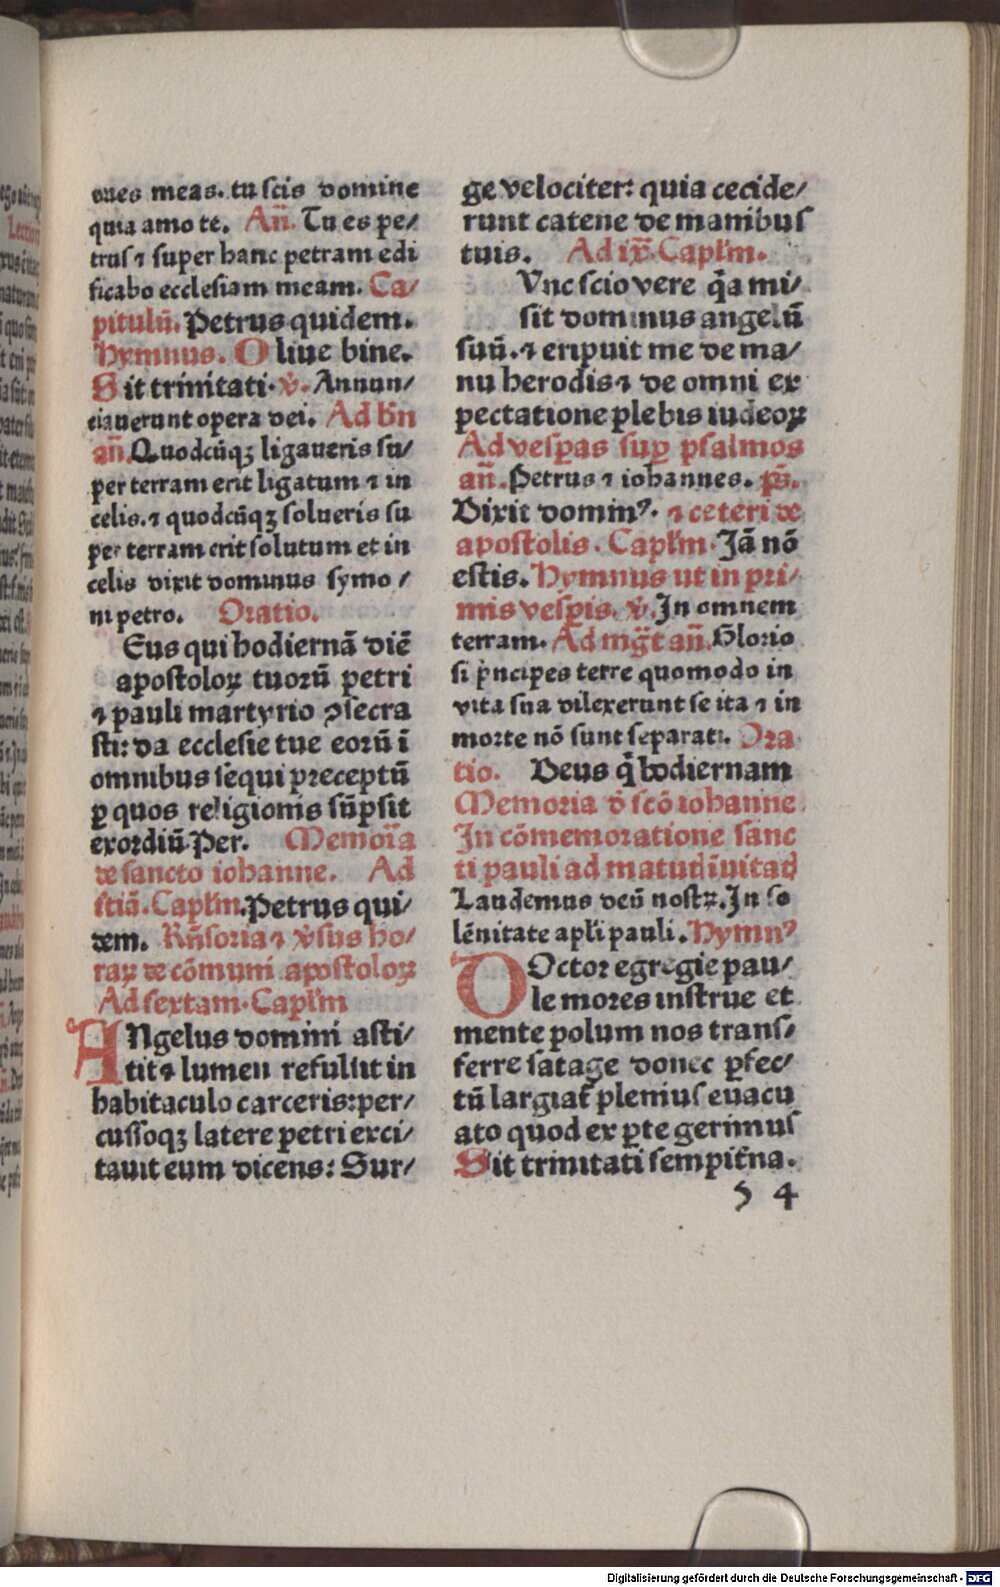 oues meas. tu scis domine
quia amo te. Añ. Tu es pe/
trus ⁊ super hanc petram edi
ficabo ecclesiam meam. Ca/
pitulū. Petrus quidem.
Hymnus. Oliue bine.
Sit trinitati. v̄. Annun/
ciauerunt opera dei. Ad bn̄
an̄. Quodcūqꝫ ligaueris su/
per terram erit ligatum ⁊ in
celis. ⁊ quodcūqꝫ solueris su
per terram erit solutum et in
celis dixit dominus symo /
ni petro. Oratio.
Eus qui hodiernā diē
apostoloꝝ tuorū petri
⁊ pauli martyrio ꝯsecra
sti: da ecclesie tue eorū ī
omnibus sequi preceptū
ꝑ quos religionis sūpsit
exordiū. Per. Memoīa
de sancto iohanne. Ad
tciā. Capl'm. Petrus qui/
dem. Rn̄soria ⁊ v̄sus ho/
raꝝ de cōmuni apostoloꝝ
Ad sextam. Capl'm
ANgelus domini asti/
tit ⁊ lumen refulsit in
habitaculo carceris: per/
cussoqꝫ latere petri exci/
tauit eum dicens: Sur/
ge velociter: quia cecide/
runt catene de manibus
tuis. Ad ix̄. Capl'm.
Vnc scio vere q̄a mi/
sit dominus angelū
suū. ⁊ eripuit me de ma/
nu herodis ⁊ de omni ex
pectatione plebis iudeoꝝ
Ad vesp̄as suꝑ psalmos
an̄. Petrus ⁊ iohannes. ps̄.
Dixit domin⁹. ⁊ ceteri de
apostolis. Capl'm. Jā nō
estis. Hymnus ut in pri/
mis vesp̄is. v̄. In omnem
terram. Ad mḡt an̄. Glorio
si p̄ncipes terre quomodo in
vita sua dilexerunt se ita ⁊ in
morte nō sunt separati. Ora
tio. Deus q̄ hodiernam
Memoria d̄ scō iohanne
In cōmemoratione sanc
ti pauli ad matud īuitad
Laudemus deū nostꝝ. In so
lēnitate apl'i pauli. Hymn⁹
DOctor egregie pau/
le mores instrue et
mente polum nos trans/
ferre satage donec ꝑfec/
tū largiat̄ plenius euacu
ato quod ex ꝑte gerimus
Sit trinitati sempit̄na.
5 4
Digitalisierung gefördert durch die Deutsche Forschungsgemeinschaft - DFG